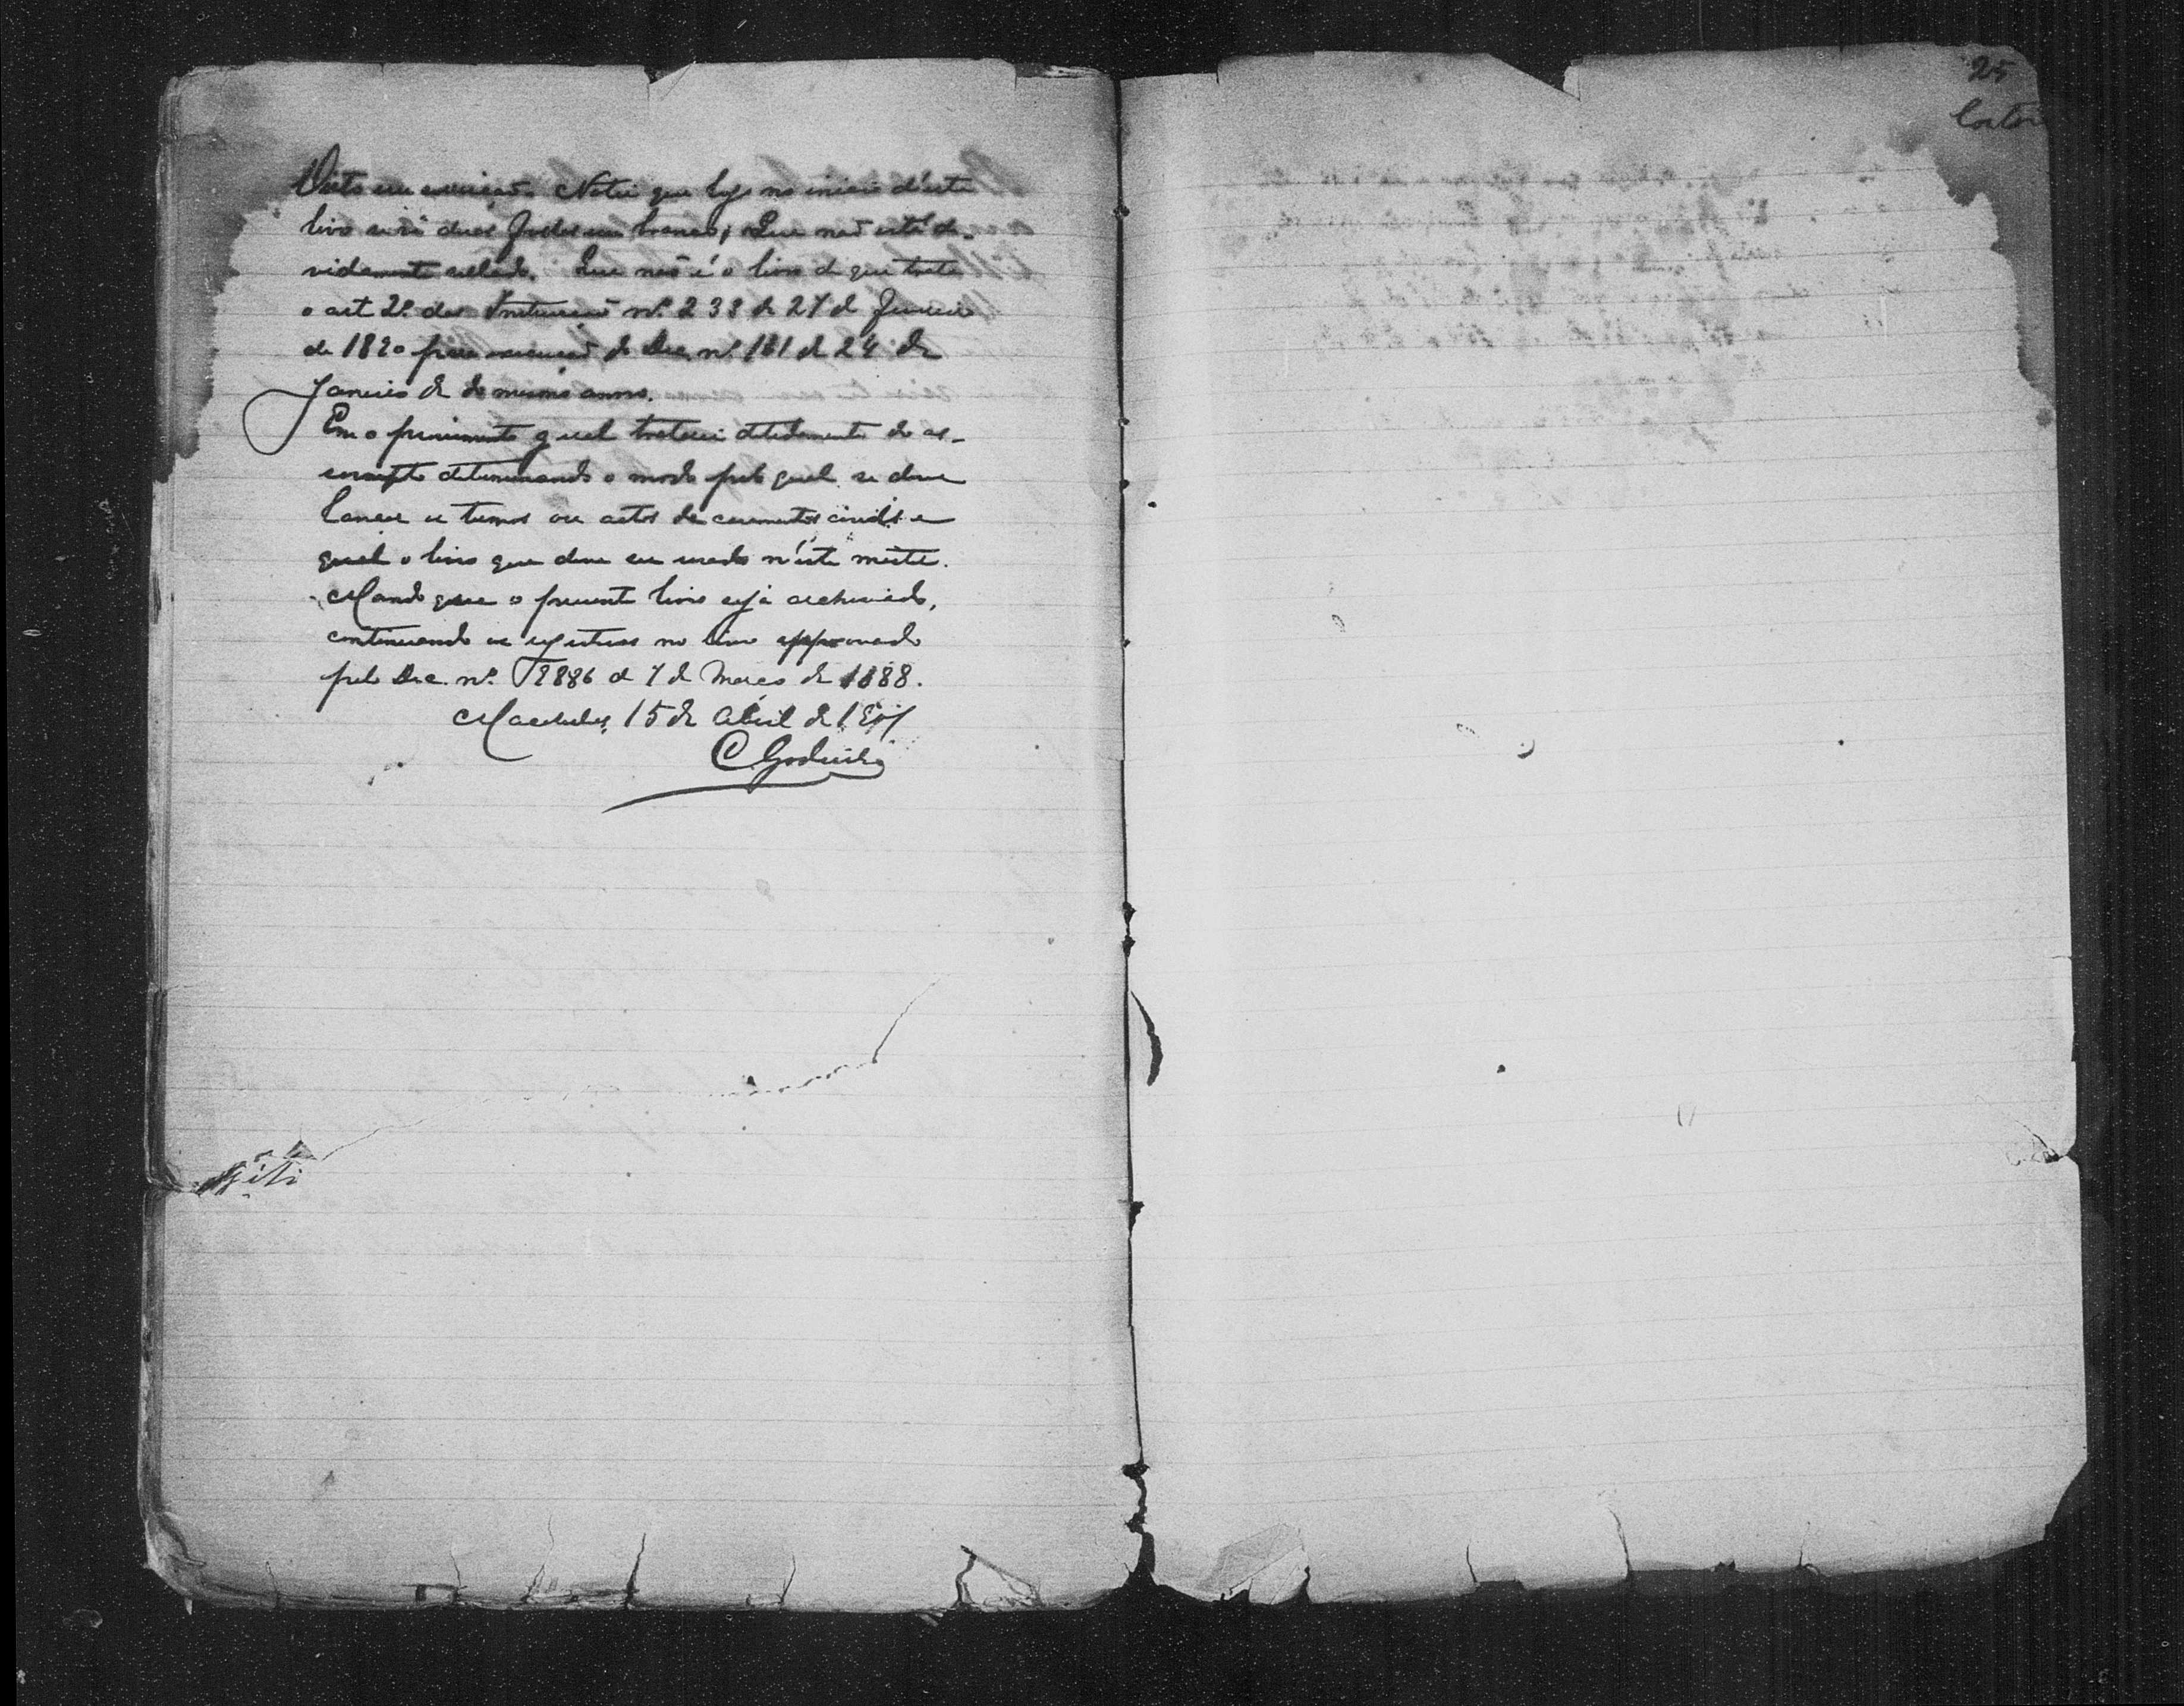 Visto em correição. Notei que logo no inicio d'este
livro duas folhas em branco; Que não está de-
vidamente sellado. Que não é o livro de que trata
o art 2º das Instrucções nº 238 de 27 de Fevereiro
de 1890 para execução do Dec. nº 181 de 24 de
Janeiro de do mesmo anno.
Em o provimento geral tratarei detidamente do as-
sumpto determinando o modo pelo qual se deve
lançar os termos ou actos de casamentos civis e
qual o livro que deve ser usado n'este mister.
Mando que o presente livro seja archivado,
continuando os registros no livro approvado
pelo Dec. nº 9886 de 7 de Março de 1888.
15 de Abril de
C. Godinho
25